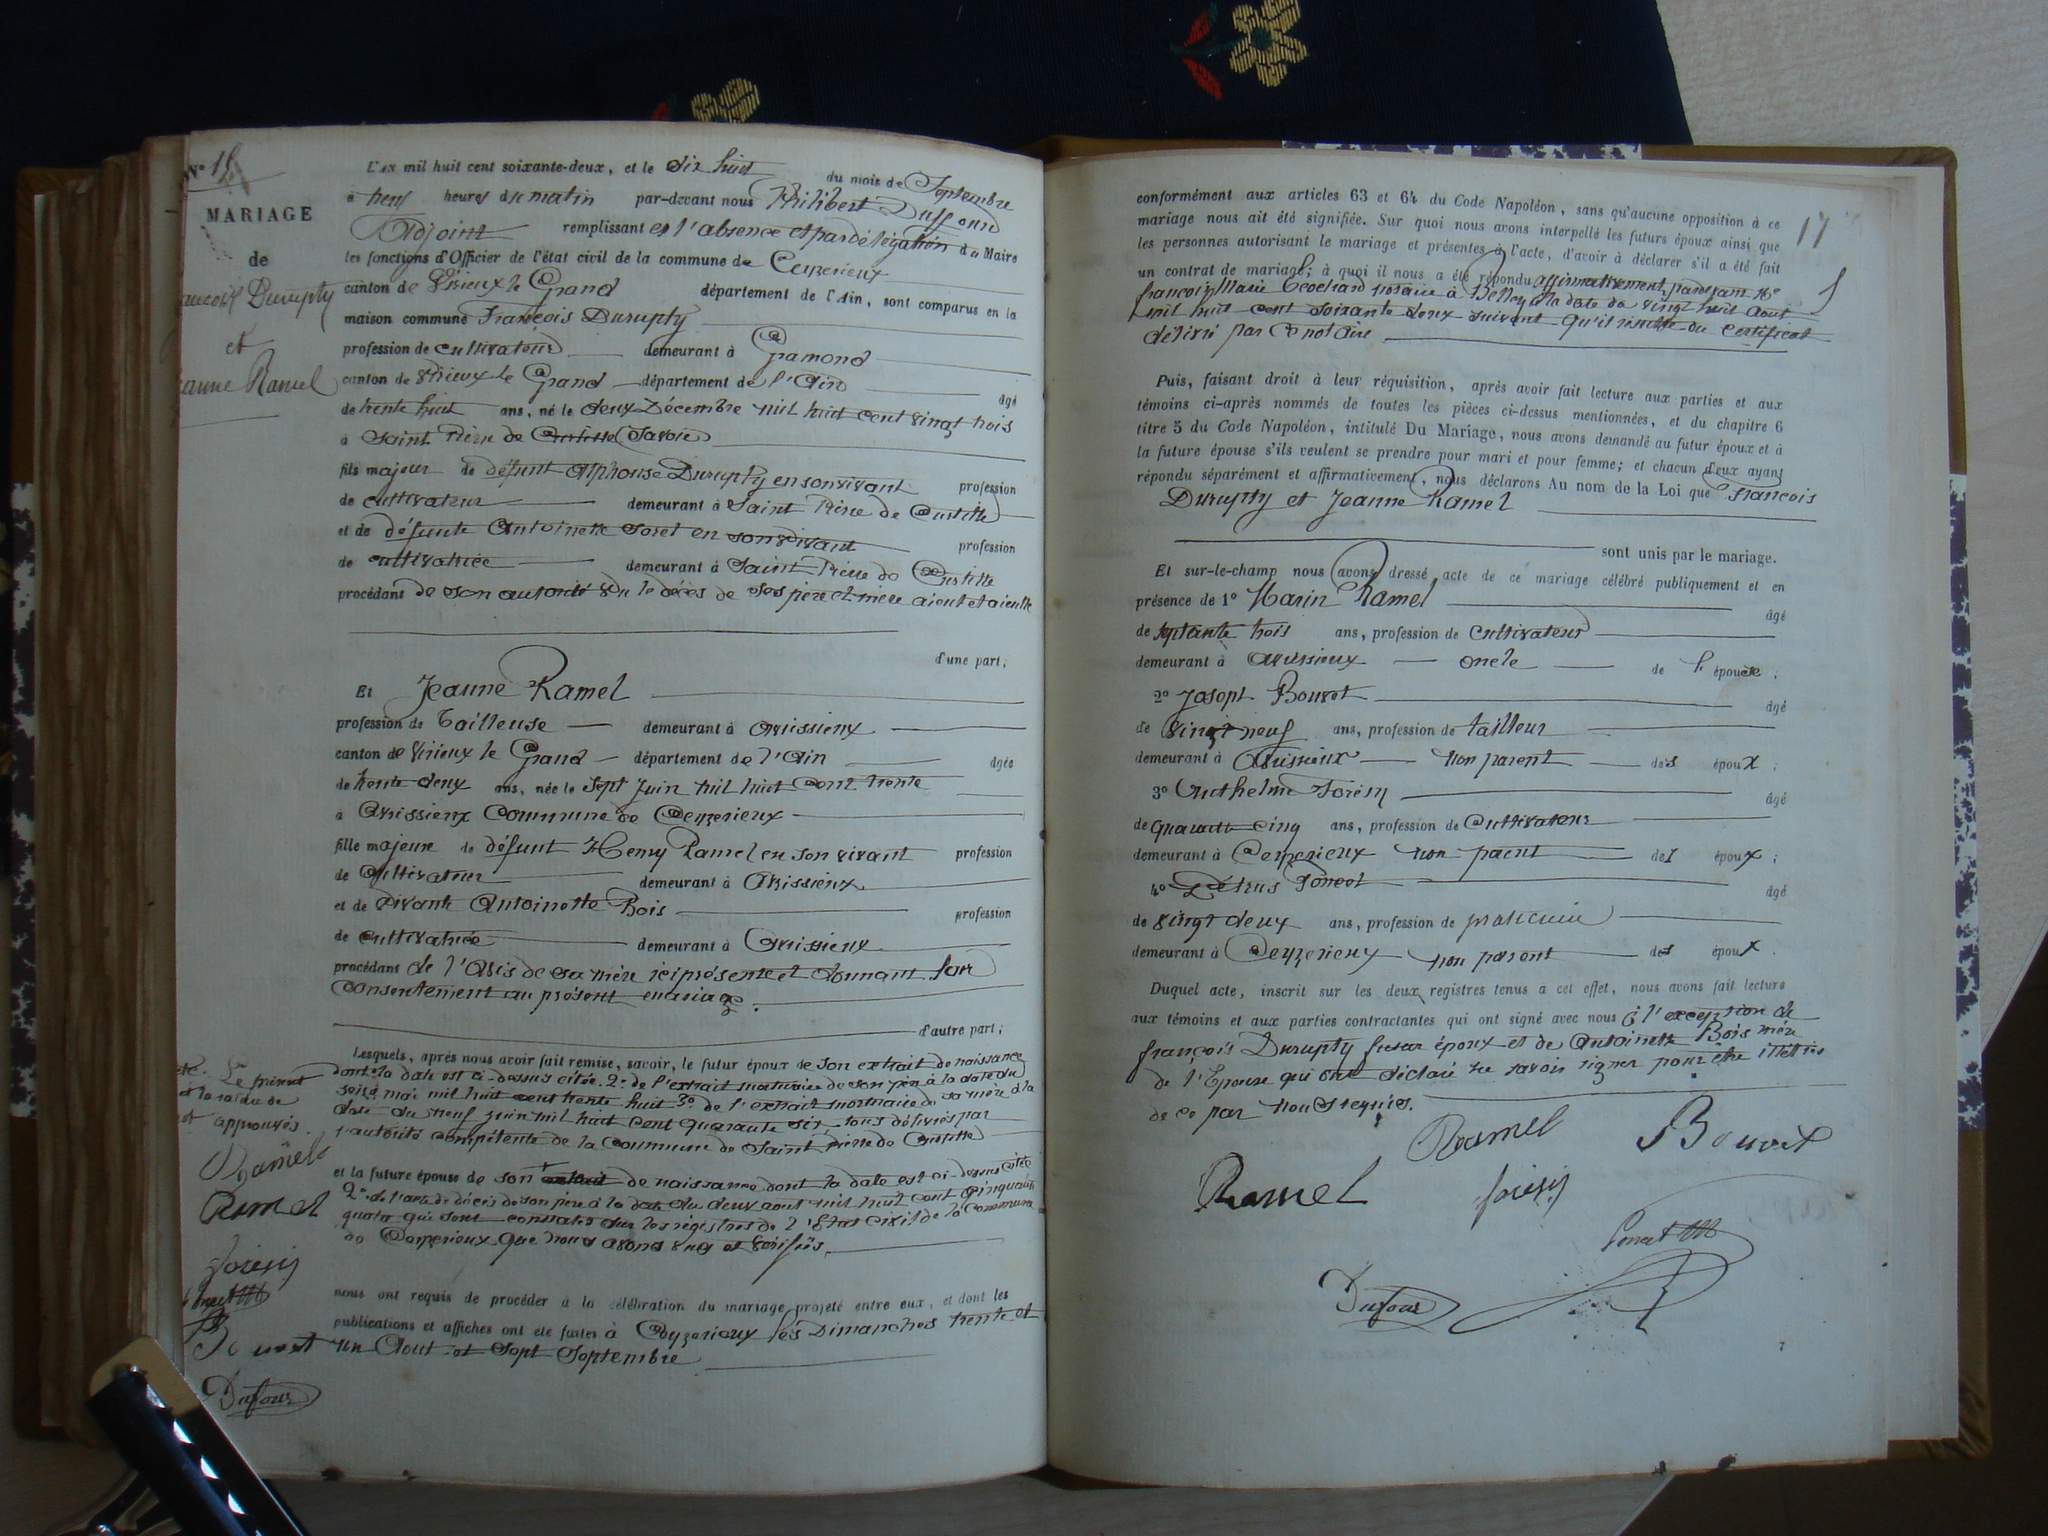 N° 18
MARIAGE
de
François Durupty
et
Jeanne Ramel
L'AN mil huit cent soixante-deux, et le dix huit du mois de Septembre
à neuf heures du matin par-devant nous Philibert Dufour
Adjoint remplissant en l'absence et par délégation du Maire
les fonctions d'Officier de l'état civil de la commune de Ceyzerieux
canton de Virieux le Grand département de l'Ain, sont comparus en la
maison commune François Durupty
profession de cultivateur demeurant à Gramond
canton de Virieux le Grand département de l'Ain âgé
de trente huit ans, né le deux Décembre mil huit cent vingt trois
à Saint Pierre de Curtille (Savoie)
fils majeur de défunt Alphonse Durupty en son vivant profession
de cultivateur demeurant à Saint Pierre de Curtille
et de défunte Antoinette Soret en son vivant profession
de cultivatrice demeurant à Saint Pierre de Curtille
procédant de son autorité vu le décès de ses père et mère aieul et aieulle
d'une part,
Et Jeanne Ramel
profession de Tailleuse demeurant à Avissieux
canton de Virieux le Grand département de l'Ain âgée
de trente deux ans, née le sept Juin mil huit cent trente
à Avissieux Commune de Ceyzerieux
fille majeure de défunt Henry Ramel en son vivant profession
de cultivateur demeurant à Avissieux
et de vivante Antoinette Bois profession
de cultivatrice demeurant à Avissieux
procédant de l'Avis de sa mère ici présente et donnant son
consentement au présent mariage.
d'autre part;
Lesquels, après nous avoir fait remise, savoir, le futur époux de son extrait de naissance
dont la date est ci-dessus citée. 2° de l'extrait mortuaire de son père à la date du
seize mai mil huit cent trente huit 3° de l'extrait mortuaire de sa mère à la
date du neuf juin mil huit cent quarante six, tous délivrés par
l'autorité compétente de la commune de Saint pierre de Curtille
et la future épouse de son extrait de naissance dont la date est ci-dessus citée
2° de l'acte de décès de son père à la date du deux aout mil huit cent cinquante
quatre qui sont constatés sur les régistres de l'Etat civil de la commune
de Ceyzerieux que nous avons vus et vérifiés.
nous ont requis de procéder à la célébration du mariage projeté entre eux, et dont les
publications et affiches ont été faites à Ceyzerieux les Dimanches trente et
un Aout et sept Septembre
approuvés
Ramel
Ramel
Jorisin
Poncet
Bouvet
Dufour
17
conformément aux articles 63 et 64 du Code Napoléon, sans qu'aucune opposition à ce
mariage nous ait été signifiée. Sur quoi nous avons interpellé les futurs époux ainsi que
les personnes autorisant le mariage et présentes à l'acte, d'avoir à déclarer s'il a été fait
un contrat de mariage; à quoi il nous a été répondu affirmativement, pardevant Me
françois Marie notaire à Belley à la date du vingt huit aout
mil huit cent soixante deux suivant qu'il résulte du certificat
délivré par ce notaire
Puis, faisant droit à leur réquisition, après avoir fait lecture aux parties et aux
témoins ci-après nommés de toutes les pièces ci-dessus mentionnées, et du chapitre 6
titre 5 du Code Napoléon, intitulé Du Mariage, nous avons demandé au futur époux et à
la future épouse s'ils veulent se prendre pour mari et pour femme; et chacun d'eux ayant
répondu séparément et affirmativement, nous déclarons Au nom de la Loi que François
Durupty et Jeanne Ramel
sont unis par le mariage.
Et sur-le-champ nous avons dressé acte de ce mariage célébré publiquement et en
présence de 1° Marin Ramel âgé
de septante trois ans, profession de cultivateur
demeurant à Avissieux oncle de l'épouse.
2° Joseph Bouvet âgé
de vingt neuf ans, profession de tailleur
demeurant à Avissieux non parent des époux;
3° Anthelme Jorisin âgé
de quarante cinq ans, profession de cultivateur
demeurant à Ceyzerieux non parent des époux;
4° Pétrus Poncet âgé
de vingt deux ans, profession de praticien
demeurant à Ceyzerieux non parent des époux.
Duquel acte, inscrit sur les deux registres tenus à cet effet, nous avons fait lecture
aux témoins et aux parties contractantes qui ont signé avec nous à l'exception de
françois Durupty futur époux et de Antoinette Bois mère
de l'Epouse qui ont déclaré ne savoir signer pour être illettrés
de ce par nous requis.
Ramel Bouvet
Ramel Jorisin
Poncet
Dufour